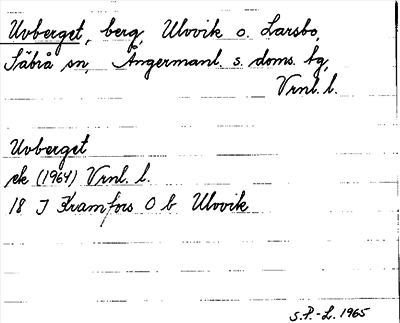 Uvberget, berg, Ulvvik o. Larsbo,
Säbrå sn, Ångermanl. s. doms. tg,
Vrnl. l.
Uvberget
ek (1964) Vrnl. l.
18 J Kramfors O b Ulvvik
S.P.-L. 1965